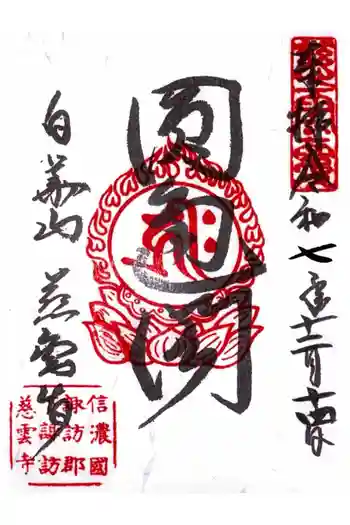 奉拝 令和七年十二月十四日
圓通閣
白華山 慈雲寺
信濃國
諏訪郡
下諏訪
慈雲寺